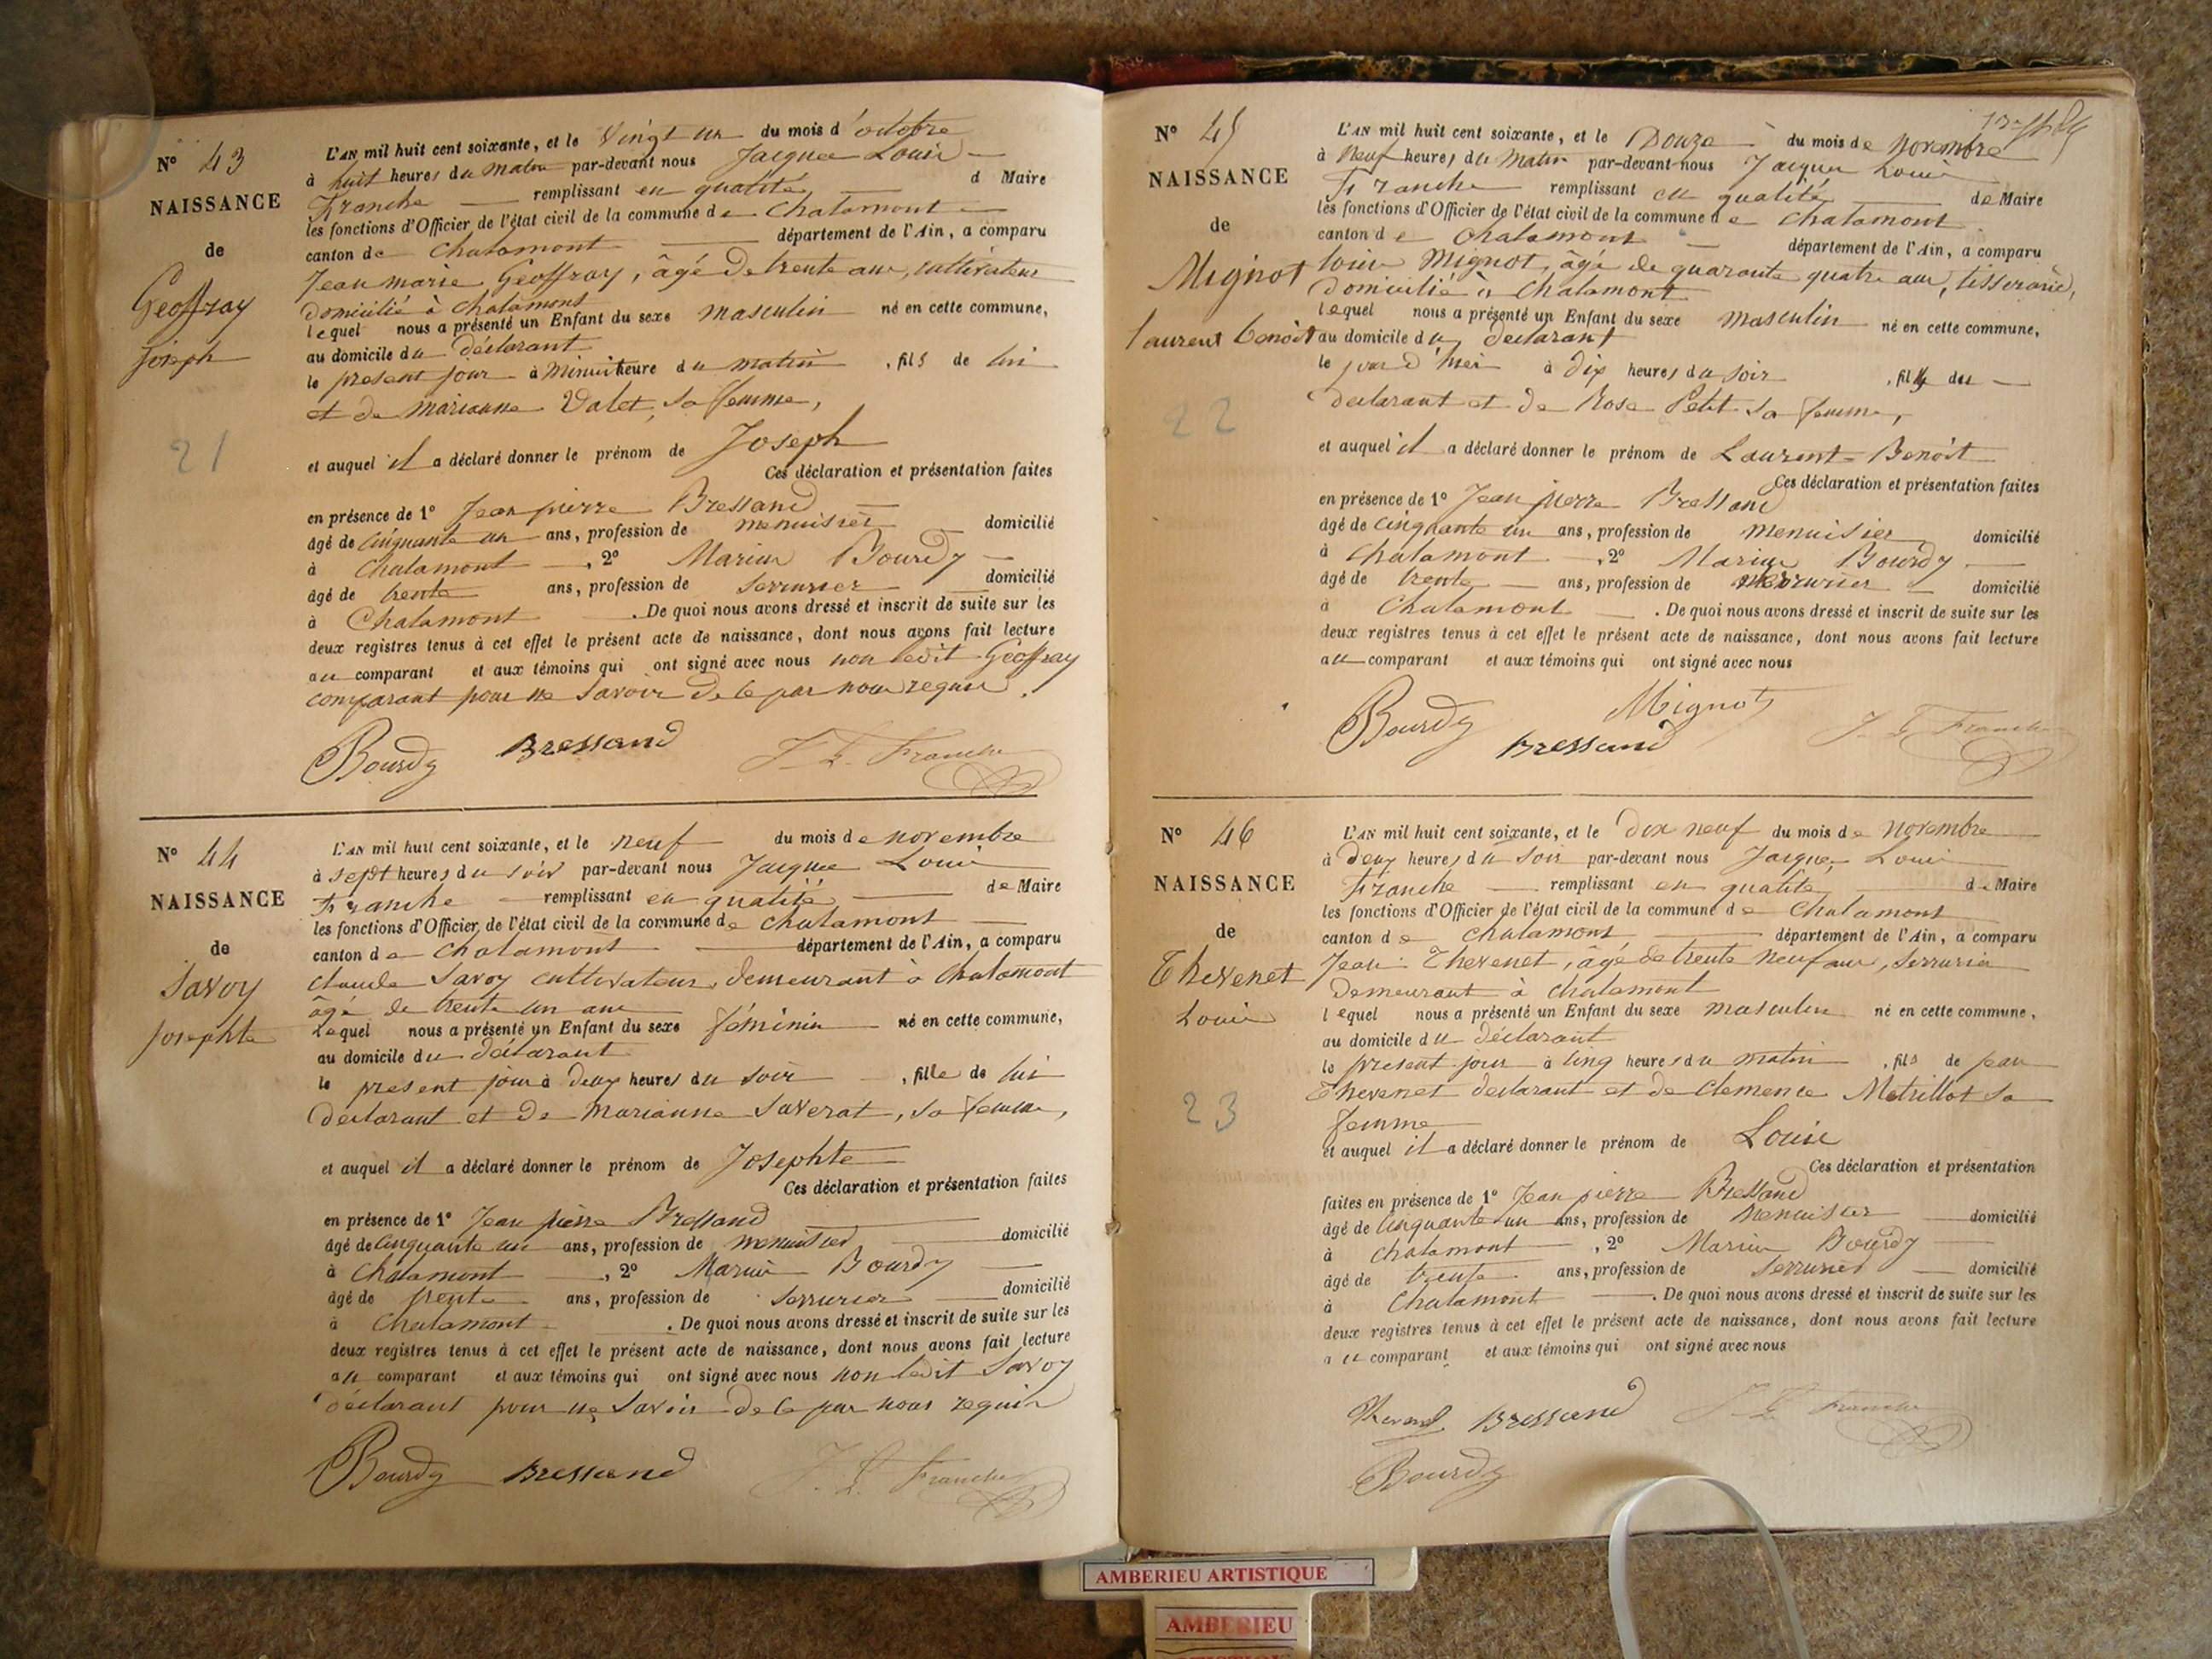 N° 43
NAISSANCE
de
Geoffray
Joseph
21
L'AN mil huit cent soixante, et le Vingt un du mois d'octobre
à huit heures du matin par-devant nous Jacques Louis
Franche remplissant en qualité d Maire
les fonctions d'Officier de l'état civil de la commune de Chalamont
canton de Chalamont département de l'Ain, a comparu
Jean marie Geoffray, âgé de trente ans, cultivateur
domicilié à Chalamont
lequel nous a présenté un Enfant du sexe masculin né en cette commune,
au domicile du déclarant
le présent jour à Minuit heure du matin, fils de lui
et de marianne Valet, sa femme,
et auquel il a déclaré donner le prénom de Joseph
Ces déclaration et présentation faites
en présence de 1° Jean pierre Bressand
âgé de Cinquante un ans, profession de menuisier domicilié
à Chalamont, 2° Marius Bourdy
âgé de trente ans, profession de Serrurier domicilié
à Chalamont. De quoi nous avons dressé et inscrit de suite sur les
deux registres tenus à cet effet le présent acte de naissance, dont nous avons fait lecture
au comparant et aux témoins qui ont signé avec nous non ledit Geoffray
comparant pour ne savoir de ce par nous requis.
Bourdy Bressand J. L. Franche
N° 44
NAISSANCE
de
Savoy
Josephte
L'AN mil huit cent soixante, et le neuf du mois de novembre
à sept heures du soir par-devant nous Jacques Louis
Franche remplissant en qualité de Maire
les fonctions d'Officier de l'état civil de la commune de Chalamont
canton de Chalamont département de l'Ain, a comparu
Claude Savoy cultivateur, demeurant à Chalamont
âgé de trente un ans
Lequel nous a présenté un Enfant du sexe féminin né en cette commune,
au domicile du déclarant
le présent jour à deux heures du soir, fille de lui
déclarant et de Marianne Saverat, sa femme,
et auquel il a déclaré donner le prénom de Josephte
Ces déclaration et présentation faites
en présence de 1° Jean pierre Bressand
âgé de cinquante un ans, profession de menuisier domicilié
à Chalamont, 2° Marius Bourdy
âgé de trente ans, profession de Serrurier domicilié
à Chalamont. De quoi nous avons dressé et inscrit de suite sur les
deux registres tenus à cet effet le présent acte de naissance, dont nous avons fait lecture
au comparant et aux témoins qui ont signé avec nous non ledit Savoy
déclarant pour ne savoir de ce par nous requis
Bourdy Bressand J. L. Franche
N° 45
NAISSANCE
de
Mignot
Laurent Benoît
22
L'AN mil huit cent soixante, et le Douze du mois de novembre
à Neuf heures du Matin par-devant nous Jacques Louis
Franche remplissant en qualité de Maire
les fonctions d'Officier de l'état civil de la commune de Chalamont
canton de Chalamont département de l'Ain, a comparu
Louis Mignot, âgé de quarante quatre ans, tisserand,
domicilié à Chalamont
lequel nous a présenté un Enfant du sexe masculin né en cette commune,
au domicile du déclarant
le jour d'hier à dix heures du soir, fils du
déclarant et de Rose Petit sa femme,
et auquel il a déclaré donner le prénom de Laurent-Benoît
Ces déclaration et présentation faites
en présence de 1° Jean pierre Bressand
âgé de cinquante un ans, profession de menuisier domicilié
à Chalamont, 2° Marius Bourdy
âgé de trente ans, profession de serrurier domicilié
à Chalamont. De quoi nous avons dressé et inscrit de suite sur les
deux registres tenus à cet effet le présent acte de naissance, dont nous avons fait lecture
au comparant et aux témoins qui ont signé avec nous
Bourdy Mignot
Bressand J. L. Franche
N° 46
NAISSANCE
de
Thevenet
Louis
23
L'AN mil huit cent soixante, et le dix neuf du mois de novembre
à deux heures du soir par-devant nous Jacques Louis
Franche remplissant en qualité de Maire
les fonctions d'Officier de l'état civil de la commune de Chalamont
canton de Chalamont département de l'Ain, a comparu
Jean Thevenet, âgé de trente neuf ans, serrurier
demeurant à chalamont
lequel nous a présenté un Enfant du sexe masculin né en cette commune,
au domicile du déclarant
le présent jour à cinq heures du matin, fils de Jean
Thevenet déclarant et de Clemence Metrillot sa
femme
et auquel il a déclaré donner le prénom de Louis
Ces déclaration et présentation
faites en présence de 1° Jean pierre Bressand
âgé de cinquante un ans, profession de menuisier domicilié
à chalamont, 2° Marius Bourdy
âgé de trente ans, profession de serrurier domicilié
à Chalamont. De quoi nous avons dressé et inscrit de suite sur les
deux registres tenus à cet effet le présent acte de naissance, dont nous avons fait lecture
au comparant et aux témoins qui ont signé avec nous
Bressand J. L. Franche
Bourdy
AMBERIEU ARTISTIQUE
AMBERIEU